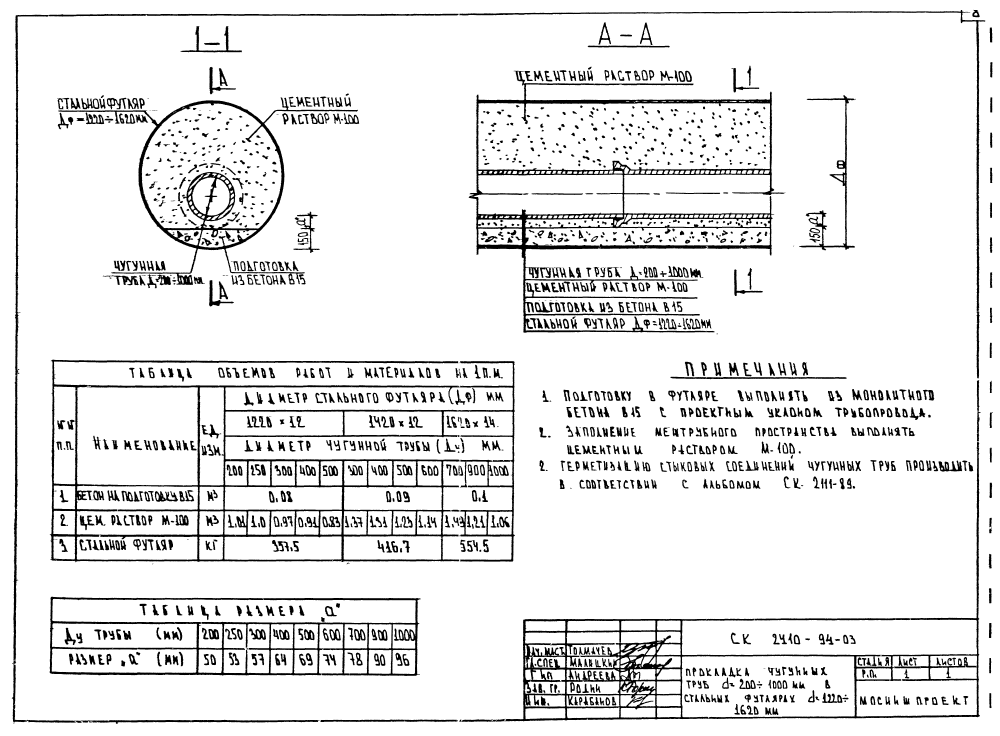 1-1
А
СТАЛЬНОЙ ФУТЛЯР
Дф=1220÷1620мм
ЦЕМЕНТНЫЙ
РАСТВОР М-100
150
а
ЧУГУННАЯ
ТРУБА Д=200÷1000мм
ПОДГОТОВКА
ИЗ БЕТОНА В15
А
А-А
ЦЕМЕНТНЫЙ РАСТВОР М-100
1
Дф
150
а
ЧУГУННАЯ ТРУБА Д=200÷1000мм
ЦЕМЕНТНЫЙ РАСТВОР М-100
ПОДГОТОВКА ИЗ БЕТОНА В15
СТАЛЬНОЙ ФУТЛЯР Дф=1220÷1620мм
1
ТАБЛИЦА ОБЪЕМОВ РАБОТ И МАТЕРИАЛОВ НА 1 П.М.
№№ П.П. НАИМЕНОВАНИЕ ЕД. ИЗМ. ДИАМЕТР СТАЛЬНОГО ФУТЛЯРА (Дф) ММ
1220×12 1420×12 1620×14
ДИАМЕТР ЧУГУННОЙ ТРУБЫ (Ду) ММ.
200 250 300 400 500 300 400 500 600 700 900 1000
1 БЕТОН НА ПОДГОТОВКУ В15 М3 0.08 0.09 0.1
2 ЦЕМ. РАСТВОР М-100 М3 1.01 1.0 0.97 0.91 0.83 1.37 1.31 1.23 1.14 1.49 1.21 1.06
3 СТАЛЬНОЙ ФУТЛЯР КГ 357.5 416.7 554.5
ТАБЛИЦА РАЗМЕРА „а"
Ду ТРУБЫ (ММ) 200 250 300 400 500 600 700 900 1000
РАЗМЕР „а" (ММ) 50 53 57 64 69 74 78 90 96
ПРИМЕЧАНИЯ
1. ПОДГОТОВКУ В ФУТЛЯРЕ ВЫПОЛНЯТЬ ИЗ МОНОЛИТНОГО
БЕТОНА В15 С ПРОЕКТНЫМ УКЛОНОМ ТРУБОПРОВОДА.
2. ЗАПОЛНЕНИЕ МЕЖТРУБНОГО ПРОСТРАНСТВА ВЫПОЛНЯТЬ
ЦЕМЕНТНЫМ РАСТВОРОМ М-100.
2. ГЕРМЕТИЗАЦИЮ СТЫКОВЫХ СОЕДИНЕНИЙ ЧУГУННЫХ ТРУБ ПРОИЗВОДИТЬ
В СООТВЕТСТВИИ С АЛЬБОМОМ СК-2111-89.
СК 2410-94-03
НАЧ. МАСТ. ТОЛМАЧЕВ
ГЛ. СПЕЦ. МАЛЯШКИН
ГИП АНДРЕЕВА
ЗАВ. ГР. РОДИН
ИНЖ. КАРАБАНОВ
ПРОКЛАДКА ЧУГУННЫХ
ТРУБ d=200÷1000мм В
СТАЛЬНЫХ ФУТЛЯРАХ d=1220÷
1620 мм
СТАДИЯ ЛИСТ ЛИСТОВ
Р.П. 1 1
МОСИНЖПРОЕКТ